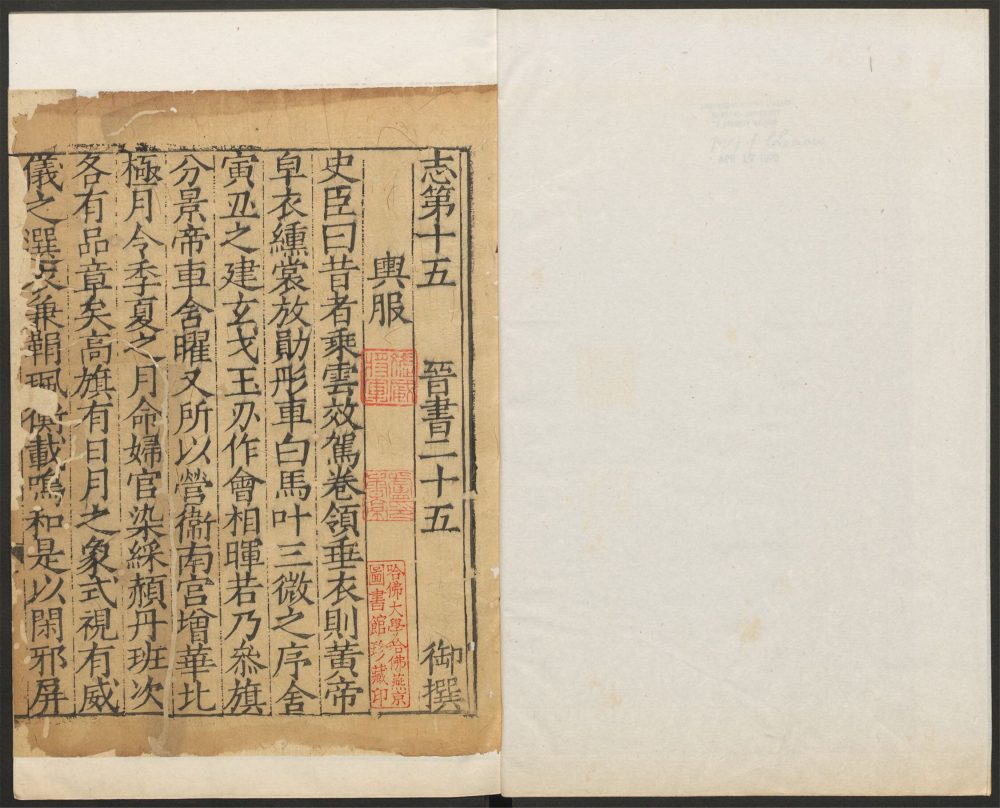 志第十五 晉書二十五 御撰
輿服
史臣曰昔者乘雲效駕卷領垂衣則黃帝
皁衣纁裳放勛彤車白馬叶三微之序舍
寅丑之建玄戈玉刃作會相暉若乃參旗
分景帝車含曜又所以營衞南宫增華北
極月令季夏之月命婦官染綵赬丹班次
各有品章矣高旗有日月之象式視有威
儀之選衣兼鞙珮衡載鳴和是以閑邪屏
哈佛大學哈佛燕京
圖書館珍藏印